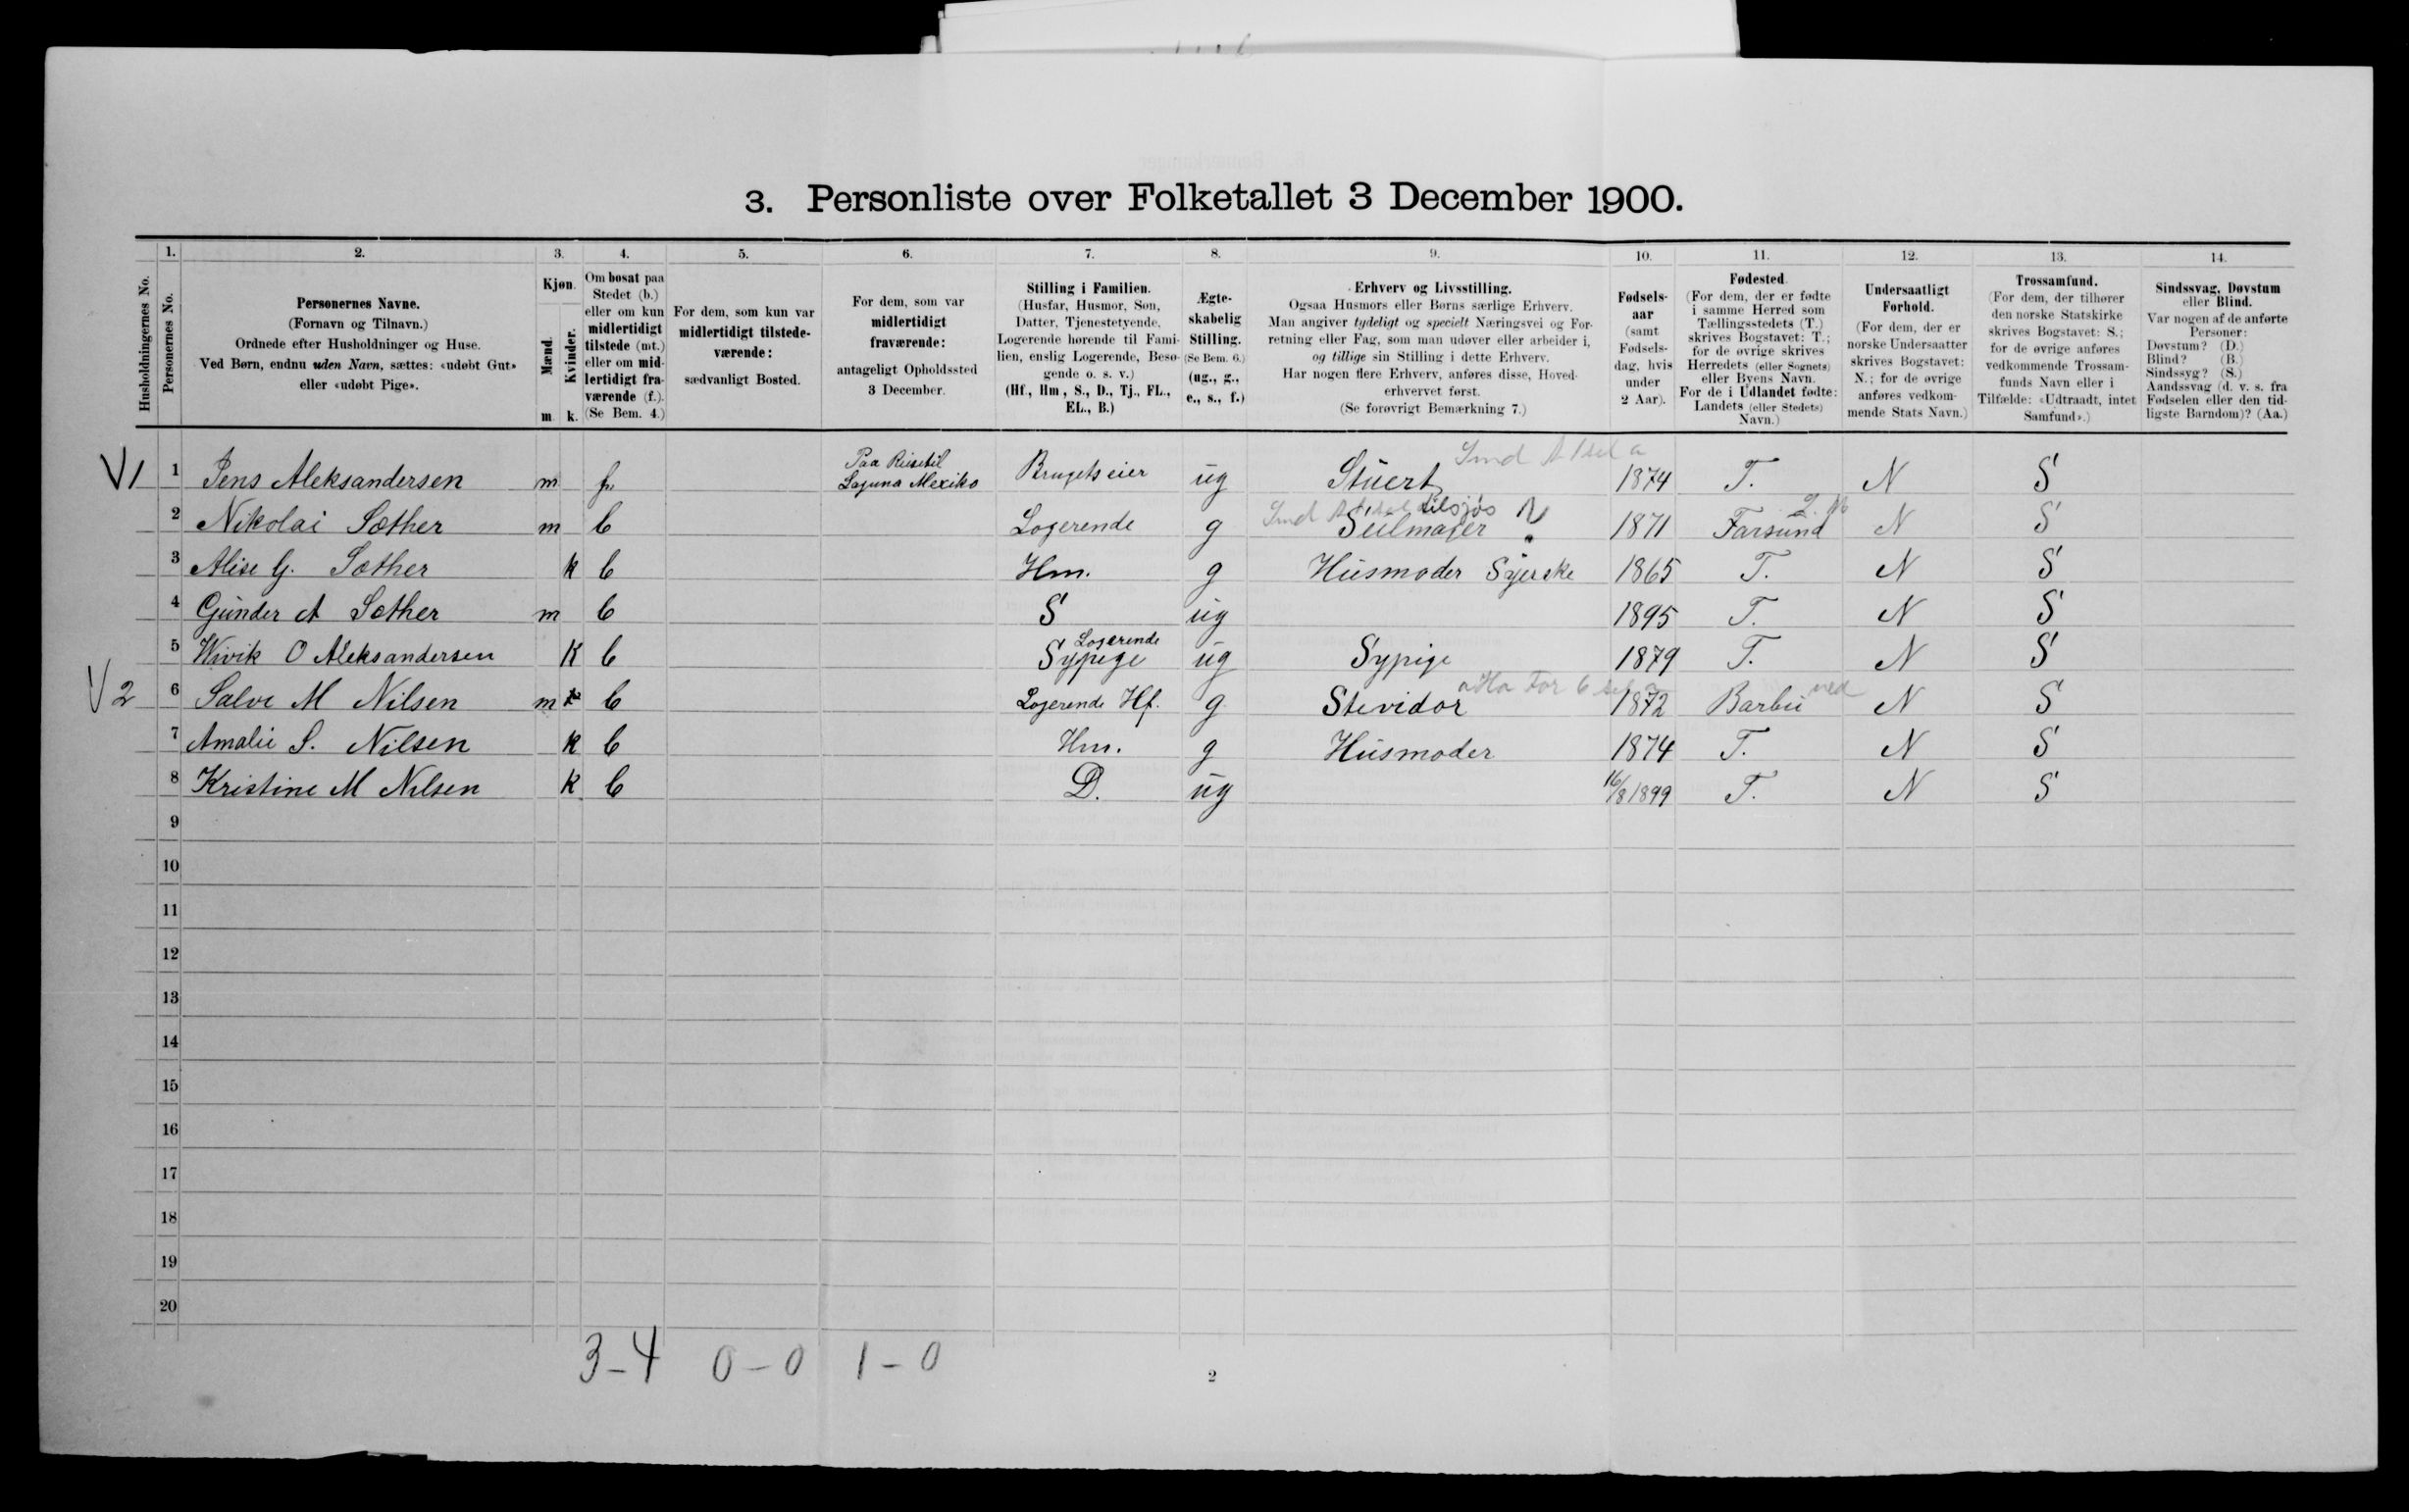 3. Personliste over Folketallet 3 December 1900.
Husholdningernes No.
1.
Personernes No.
2.
Personernes Navne.
(Fornavn og Tilnavn.)
Ordnede efter Husholdninger og Huse.
Ved Børn, endnu uden Navn, sættes: «udøbt Gut»
eller «udøbt Pige».
3.
Kjøn.
Mænd.
Kvinder.
m. k.
4.
Om bosat paa
Stedet (b.)
eller om kun
midlertidigt
tilstede (mt.)
eller om mid-
lertidigt fra-
værende (f.).
(Se Bem. 4.)
5.
For dem, som kun var
midlertidigt tilstede-
værende:
sædvanligt Bosted.
6.
For dem, som var
midlertidigt
fraværende:
antageligt Opholdssted
3 December.
7.
Stilling i Familien.
(Husfar, Husmor, Søn,
Datter, Tjenestetyende,
Logerende hørende til Fami-
lien, enslig Logerende, Besø-
gende o. s. v.)
(Hf., Hm., S., D., Tj., FL.,
EL., B.)
8.
Ægte-
skabelig
Stilling.
(Se Bem. 6.)
(ug., g.,
e., s., f.)
9.
Erhverv og Livsstilling.
Ogsaa Husmors eller Børns særlige Erhverv.
Man angiver tydeligt og specielt Næringsvei og For-
retning eller Fag, som man udøver eller arbeider i,
og tillige sin Stilling i dette Erhverv.
Har nogen flere Erhverv, anføres disse, Hoved-
erhvervet først.
(Se forøvrigt Bemærkning 7.)
10.
Fødsels-
aar
(samt
Fødsels-
dag, hvis
under
2 Aar).
11.
Fødested
(For dem, der er fødte
i samme Herred som
Tællingsstedets (T.)
skrives Bogstavet: T.;
for de øvrige skrives
Herredets (eller Sognets)
eller Byens Navn.
For de i Udlandet fødte:
Landets (eller Stedets)
Navn.)
12.
Undersaatligt
Forhold.
(For dem, der er
norske Undersaatter
skrives Bogstavet:
N.; for de øvrige
anføres vedkom-
mende Stats Navn.)
13.
Trossamfund.
(For dem, der tilhører
den norske Statskirke
skrives Bogstavet: S.;
for de øvrige anføres
vedkommende Trossam-
funds Navn eller i
Tilfælde: «Udtraadt, intet
Samfund».)
14.
Sindssvag, Døvstum
eller Blind.
Var nogen af de anførte
Personer:
Døvstum? (D.)
Blind? (B.)
Sindssyg? (S.)
Aandssvag (d. v. s. fra
Fødselen eller den tid-
ligste Barndom)? (Aa.)
1 1 Jens Aleksandersen m f. Paa Reise til Laguna Mexiko Brugets eier ug Stuert 1874 T. N S
2 Nikolai Sæther m b Logerende g Seilmager tilsjøs ? 1871 Farsund N S
3 Alise G. Sæther k b Hm. g Husmoder Syerske 1865 T. N S
4 Gunder A Sæther m b S ug 1895 T. N S
5 Wivik O Aleksandersen K b Logerende Sypige ug Sypige 1879 T. N S
2 6 Salve M Nilsen m b Logerende Hf. g Stevidor 1872 Barbu N S
7 Amalie S. Nilsen k b Hm. g Husmoder 1874 T. N S
8 Kristine M Nilsen k b D. ug 16/8 1899 T. N S
9
10
11
12
13
14
15
16
17
18
19
20
3-4 0-0 1-0
2